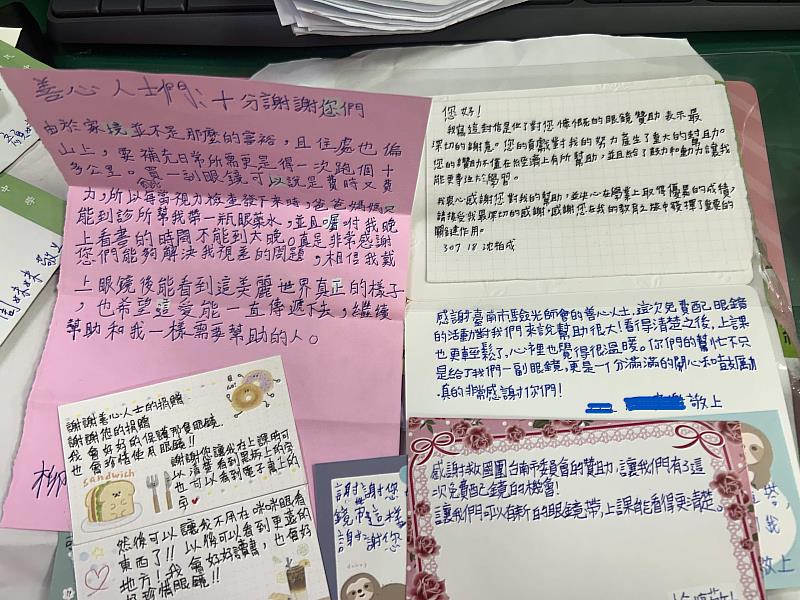 善心人士們:十分謝謝您們
由於家境並不是那麼的富裕,且住處也偏
山上,要補充日常所需更是得一次跑個十
多公里。買一副眼鏡可以說是費時又費
力,所以每當視力檢查發下來時,爸爸媽媽只
能到診所幫我帶一瓶眼藥水,並且囑咐我晚
上看書的時間不能到太晚。真是非常感謝
您們能夠解決我視差的問題,相信我戴
上眼鏡後能看到這美麗世界真正的樣子
,也希望這愛能一直傳遞下去,繼續
幫助和我一樣需要幫助的人。
您好!
我寫這封信是為了對您慷慨的眼鏡贊助表示最
深切的謝意。您的貢獻對我的努力產生了重大的幫助。
您的贊助不僅在經濟上有所幫助,並且給了鼓力和動力讓我
能更專注於學習。
我衷心感謝您對我的幫助,並決心在學業上取得優異的成績,
請接受我最深切的感謝。感謝您在我的教育之旅中發揮了重要的
關鍵作用。
307 18 沈柏成
感謝臺南市馭光師會的善心人士,這次免費配眼鏡
的活動對我們來說幫助很大!看得清楚之後,上課
也更輕鬆了,心裡也覺得很溫暖。你們的幫忙不只
是給了我們一副眼鏡,更是一份滿滿的關心和鼓勵
,真的非常感謝你們!
敬上
謝謝善心人士的捐贈
謝謝您的捐贈
我會好好的保護那隻眼鏡
也會珍惜使用眼鏡!!
謝謝您讓我在上課時可
以清楚看到黑板上的字
也可以看到電子黑上的
字
sandwich
然後可以讓我不用在咪咪眼看
東西了!!以後可以看到更遠的
地方!我會好好讀書,也有好
好珍惜眼鏡!!
謝謝您
鏡
謝謝您
感謝救國團台南市委員會的贊助,讓我們有了這
次免費配鏡的機會!
讓我們可以有新的眼鏡帶,上課能看得更清楚。
我
敬上
敬上